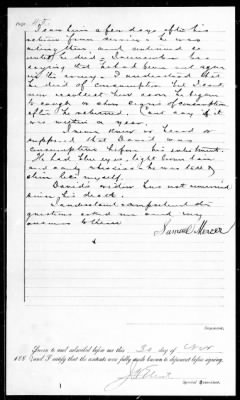 Page
I saw him a few days after his
return from service & he was
ailing then, and continued so
until he died. I remember his
saying that he had been sick again
in the army. I understood that
he died of consumption but I can
not recollect how soon he began
to cough or show signs of consumption
after he returned but say if it
was within a year.
I never knew or heard or
supposed that David was
consumptive before his enlistment.
He had blue eyes, light brown hair
and sandy whiskers he was
like myself.
David's widow has not remarried
since his death.
I understand
questions asked me and my
answers to these
Samuel Mercer
Deponent.
Sworn to and subscribed before me this 30 day of Nov
188 and I certify that the contents were fully made known to deponent before signing.
Special Examiner.